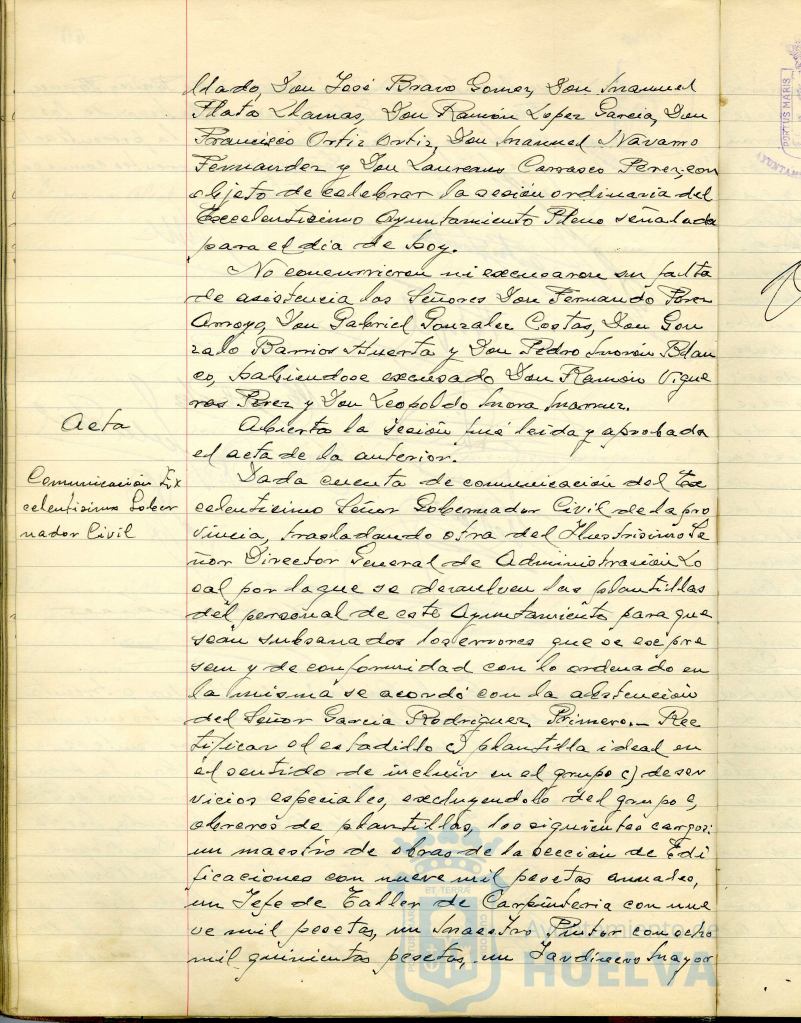 llado, Don José Bravo Gomez, Don Manuel
Plata Llamas, Don Ramón Lopez Garcia, Don
Francisco Ortiz Ortiz, Don Manuel Navarro
Fernandez y Don Laureano Carrasco Perez, con
objeto de celebrar la sesión ordinaria del
Excelentisimo Ayuntamiento Pleno señalada
para el dia de hoy.
No concurrieron ni excusaron su falta
de asistencia los Señores Don Fernando Perez
Arroyo, Don Gabriel Gonzalez Costas, Don Gon
zalo Barrios Huerta y Don Pedro Morón Blan
co, habiendose excusado Don Ramón Vigue
ras Perez y Don Leopoldo Mora
Acta
Abierta la sesión fué leida y aprobada
el acta de la anterior.
Comunicación Ex
celentisimo Gober
nador Civil
Dada cuenta de comunicación del Ex
celentisimo Señor Gobernador Civil de la pro
vincia, trasladando otra del Ilustrisimo Se
ñor Director General de Administración Lo
cal por la que se devuelven las plantillas
del personal de este Ayuntamiento para que
sean subsanados los errores que se expre
sen y de conformidad con lo ordenado en
la misma se acordó con la abstención
del Señor Garcia Rodriguez. Primero.- Rec
tificar el estadillo c) plantilla ideal en
el sentido de incluir en el grupo c) de ser
vicios especiales, excluyendolo del grupo e,
obreros de plantillas, los siguientes cargos:
un maestro de obras de la sección de Edi
ficaciones con nueve mil pesetas anuales,
un Jefe de Taller de Carpinteria con nue
ve mil pesetas, un Maestro Pintor con ocho
mil quinientas pesetas, un Jardinero Mayor
PORTUS MARIS
ET TERRÆ
Ayuntamiento de
HUELVA